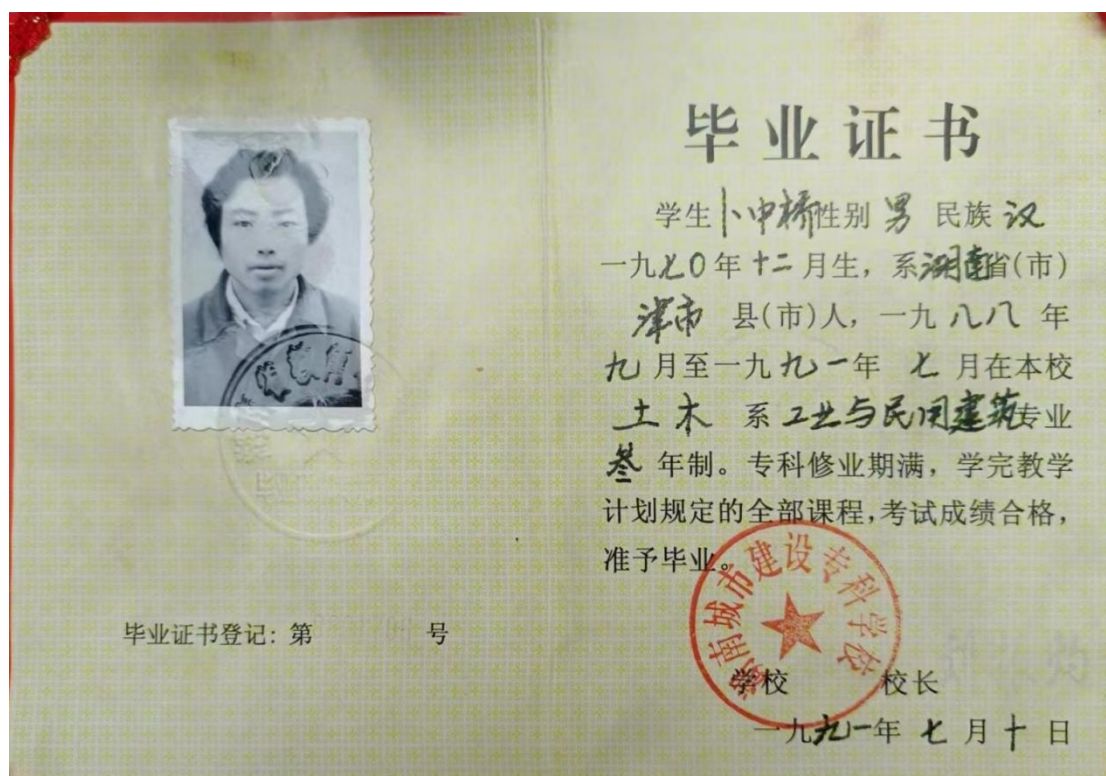 毕业证书
学生卜中桥性别 男 民族 汉
一九七0年十二月生，系湖南省(市)
津市 县(市)人，一九八八 年
九月至一九九一年 七 月在本校
土木 系 工业与民用建筑专业
叁 年制。专科修业期满，学完教学
计划规定的全部课程，考试成绩合格，
准予毕业。
湖南城市建设专科学校
学校 校长
一九九一年 七 月 十 日
毕业证书登记：第 号